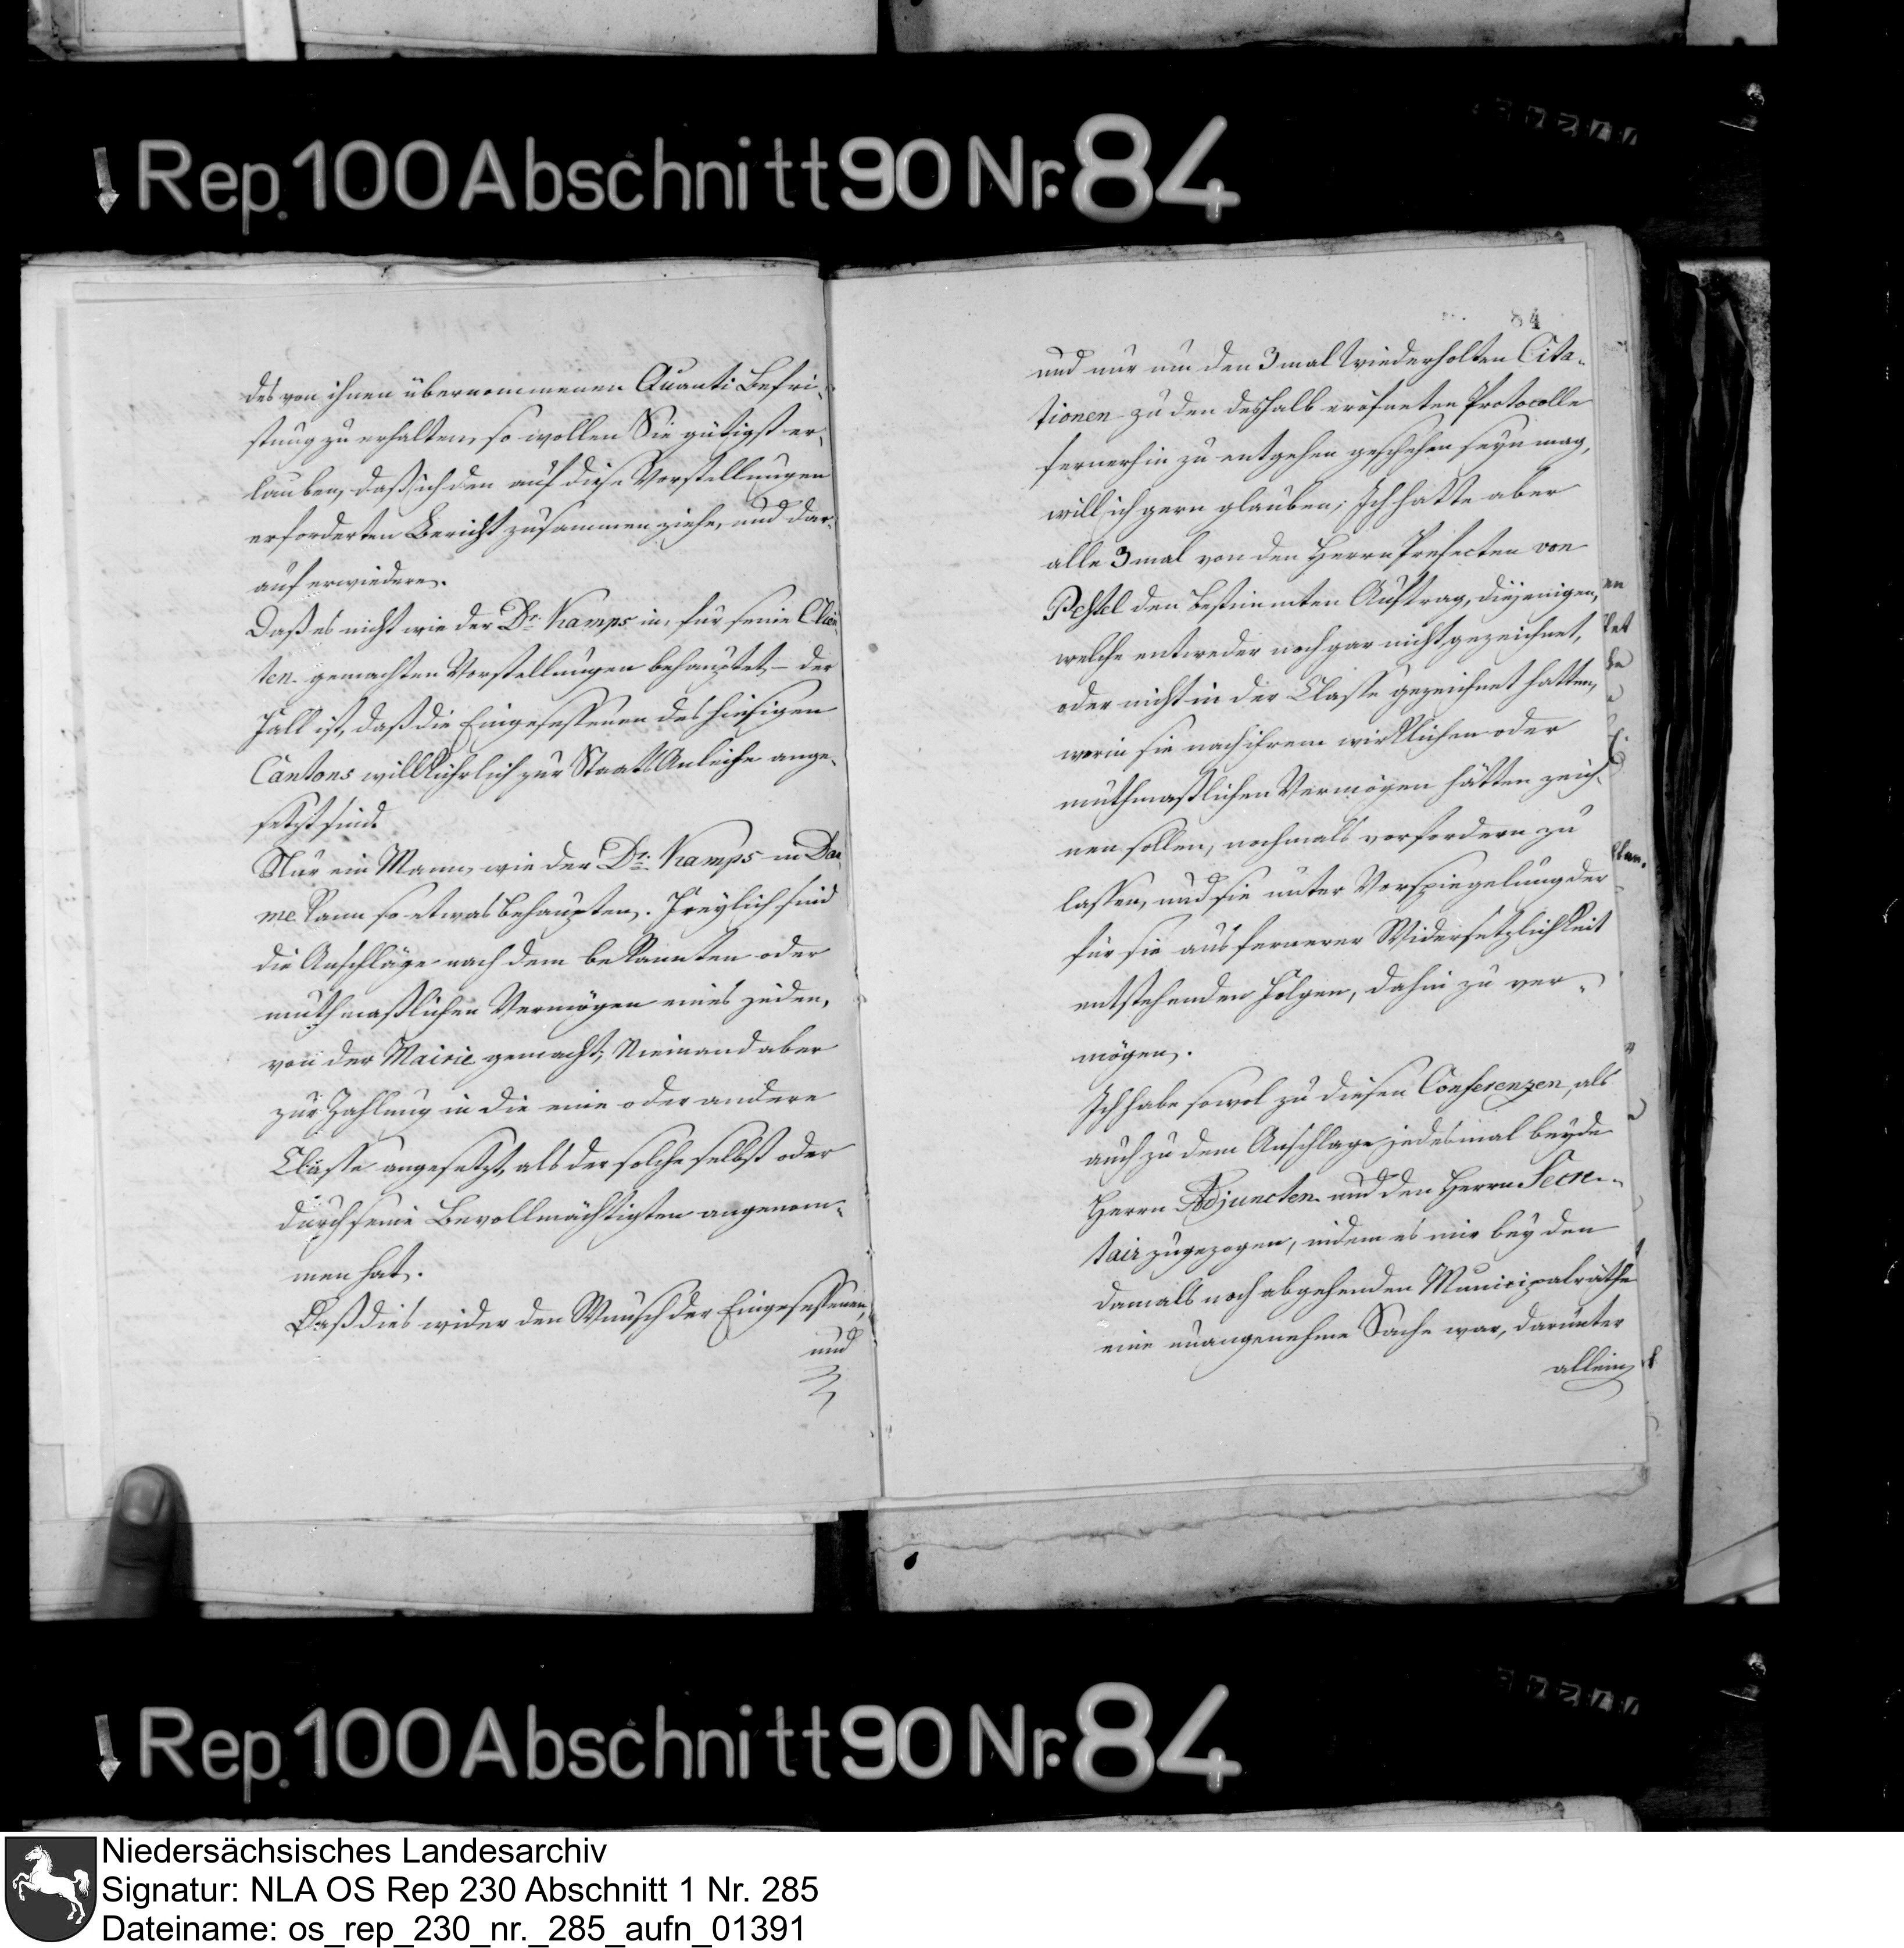 Rep. 100 Abschnitt 90 Nr. 84
des von ihnen übernommenen Quanti Befri-
stung zu erhalten, so wollen Sie gütigst er-
lauben, daß ich den auf diese Vorstellungen
erforderten Bericht zusammen ziehe, und dar-
auf erwiedere.
Daß es nicht wie der Dr. Kamps in, für seine Clien
ten gemachten Vorstellungen behauptet, – der
Fall ist, daß die Eingesessenen des hiesigen
Cantons willkührlich zur Staats Anleihe ange-
setzt sind.
Nur ein Mann, wie der Dr. Kamps in Dam
me kann so etwas behaupten. Freylich sind
die Anschläge nach dem bekannten oder
muthmaßlichen Vermögen eines jeden,
von der Mairie gemacht; Niemand aber
zur Zahlung in die eine oder andere
Classe angesetzt, als der solche selbst oder
durch seine Bevollmächtigten angenom-
men hat.
Daß dies wider den Wunsch der Eingesessenen,
und
84
und nur um den 3 mal wiederholten Cita-
tionen zu den deshalb eröfneten Protocolle
fernerhin zu entgehen geschehen seyn mag,
will ich gern glauben; Ich hatte aber
alle 3 mal von den Herrn Prefecten von
Pestel den bestimmten Auftrag, diejenigen,
welche entweder noch gar nicht gezeichnet,
oder nicht in der Classe gezeichnet hatten,
worin sie nach ihrem wirklichen oder
muthmaßlichen Vermögen hätten zeich-
nen sollen, nochmals vorfordern zu
lassen, und sie unter Vorspiegelung der
für sie aus fernerer Widersetzlichkeit
entstehenden Folgen, dahin zu ver-
mögen.
Ich habe sowol zu diesen Conferenzen, als
auch zu dem Anschlage jedesmal beyde
Herrn Adjuncten und den Herrn Secre-
tair zugezogen, indem es mir bey den
damals noch abgehenden Municipalräthe
eine unangenehme Sache war, darunter
allein
Rep. 100 Abschnitt 90 Nr. 84
Niedersächsisches Landesarchiv
Signatur: NLA OS Rep 230 Abschnitt 1 Nr. 285
Dateiname: os_rep_230_nr._285_aufn_01391